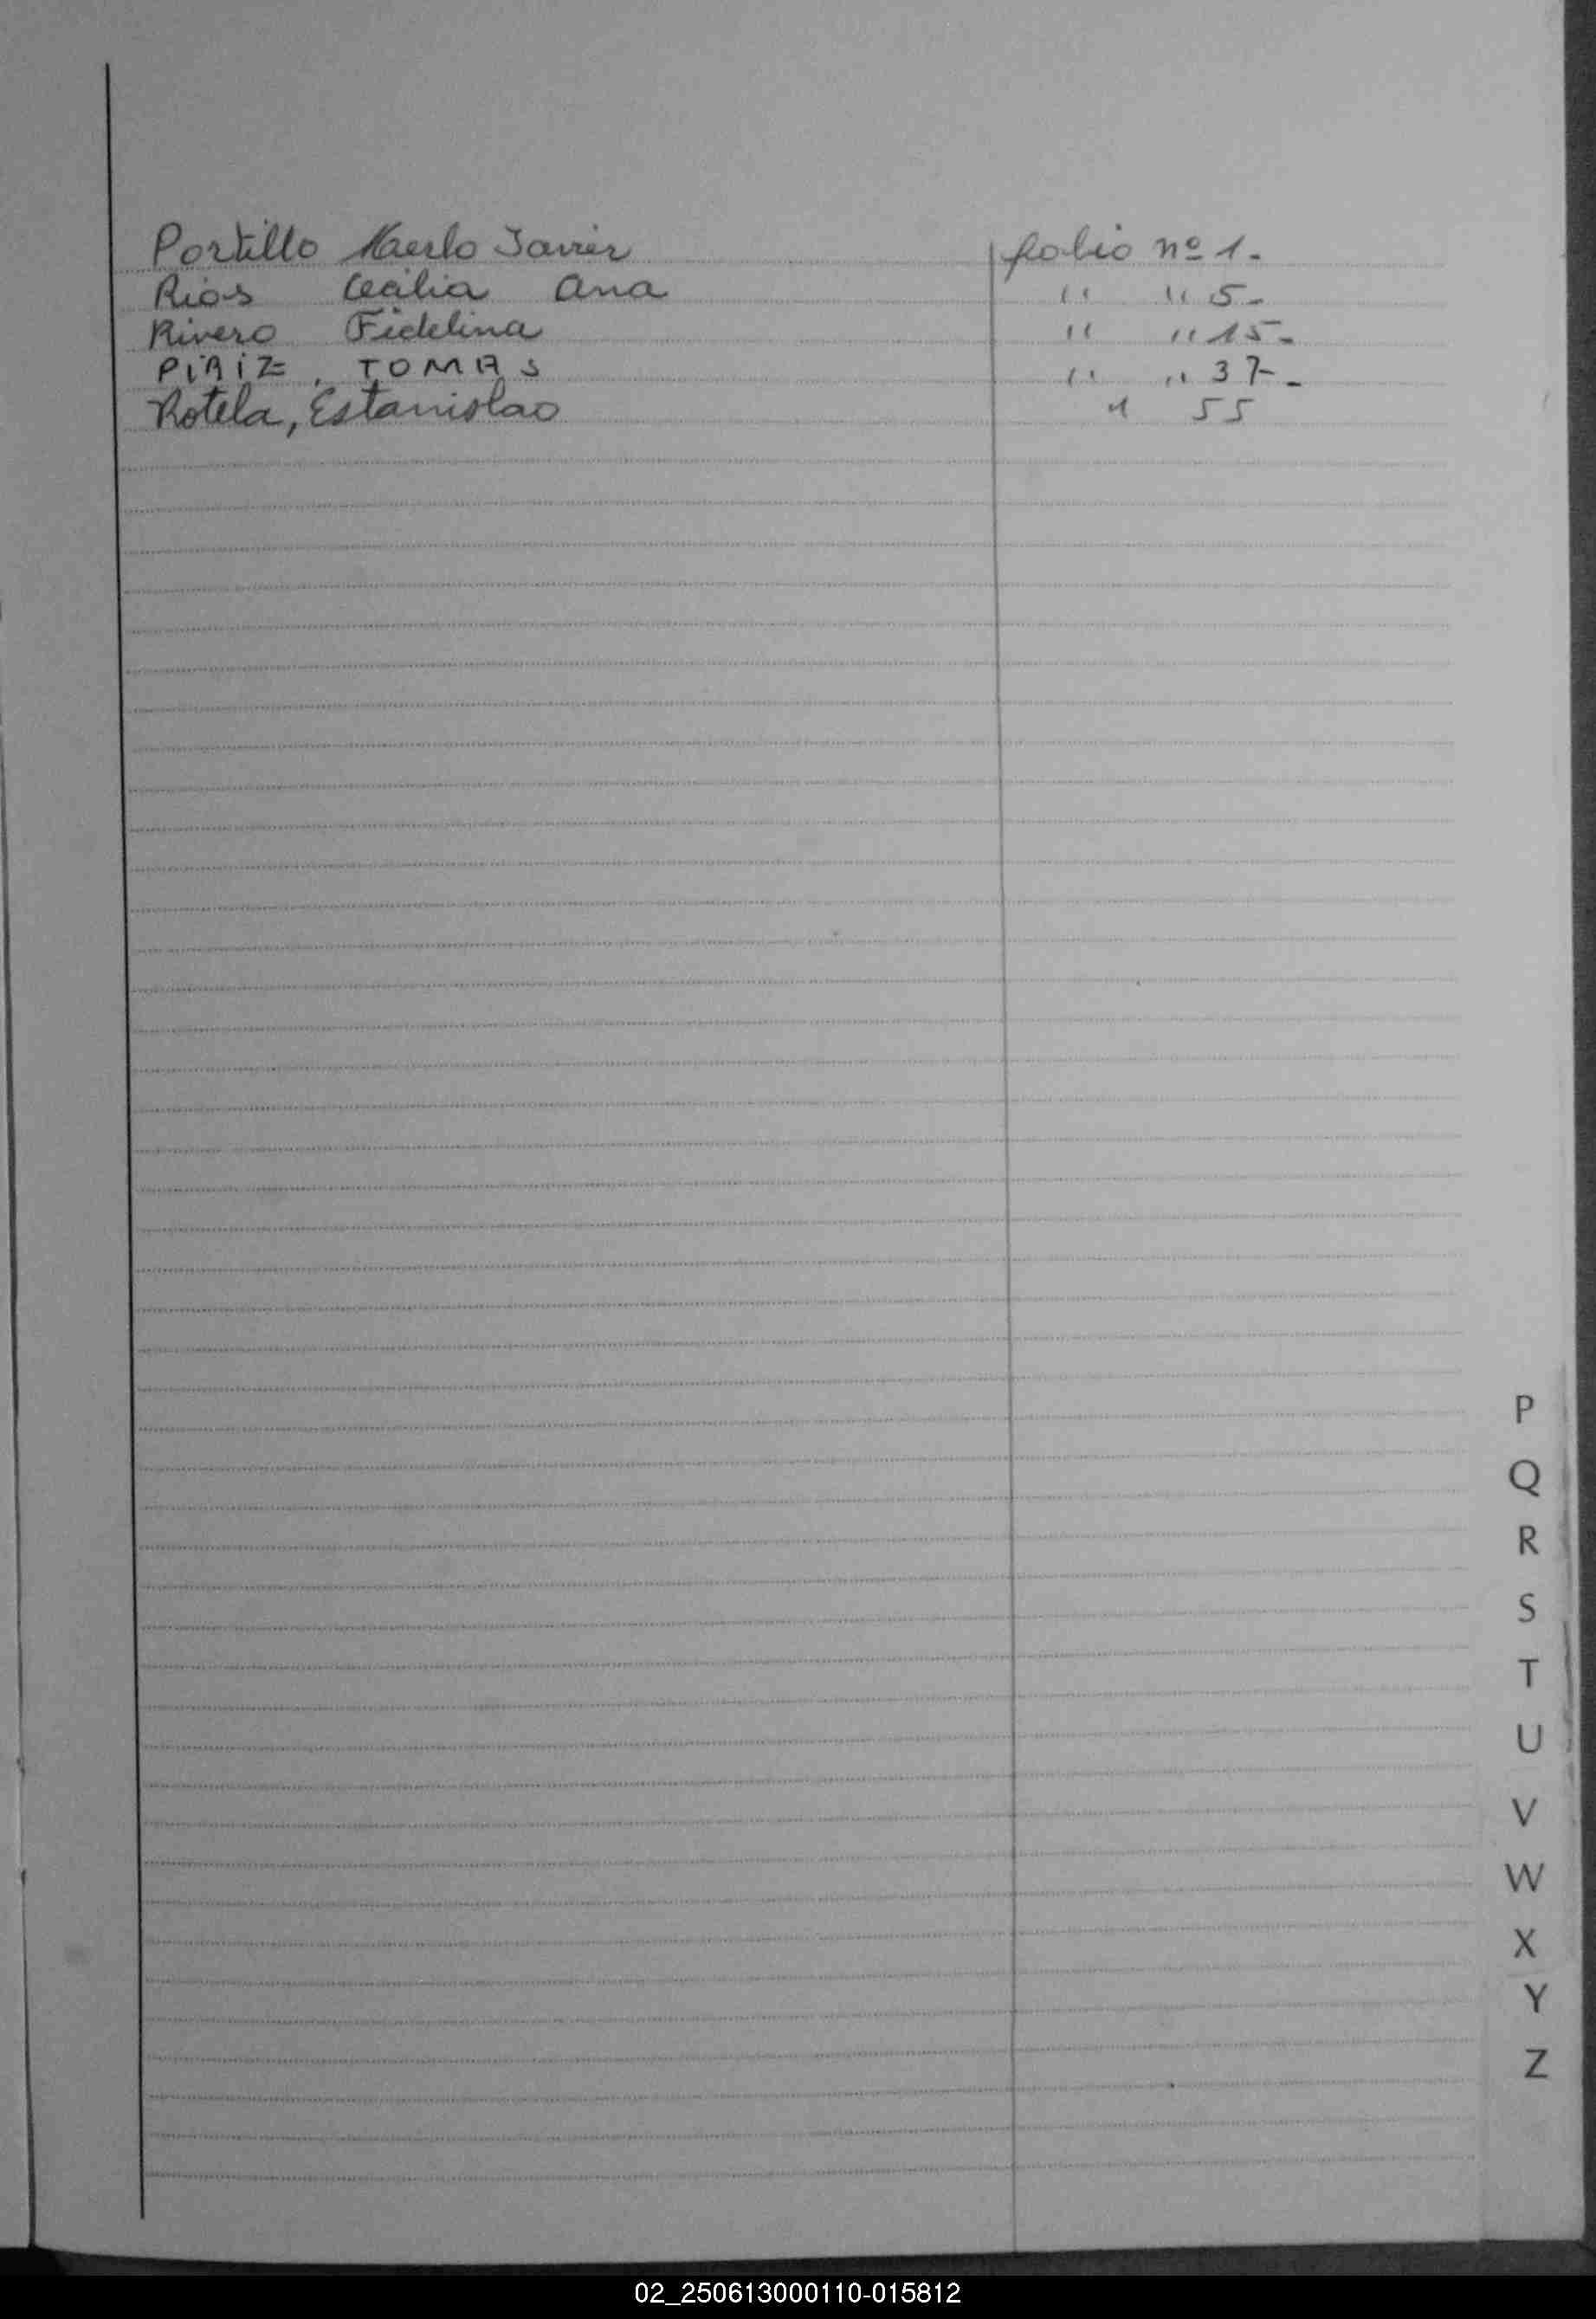 Portillo Merlo Javier folio nº 1.-
Rios Cecilia Ana " " 5-
Rivero Fidelina " " 15-
PIRIZ, TOMAS " " 37-
Rotela, Estanislao " 55
P
Q
R
S
T
U
V
W
X
Y
Z
02_250613000110-015812